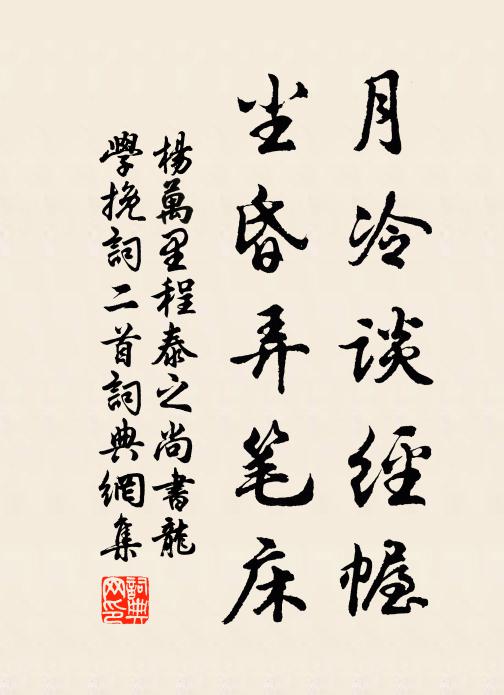 月冷談經幄
尘昏弄笔床
楊萬里程泰之尚書龍
學挽詞二首詞典網集
詞典网印